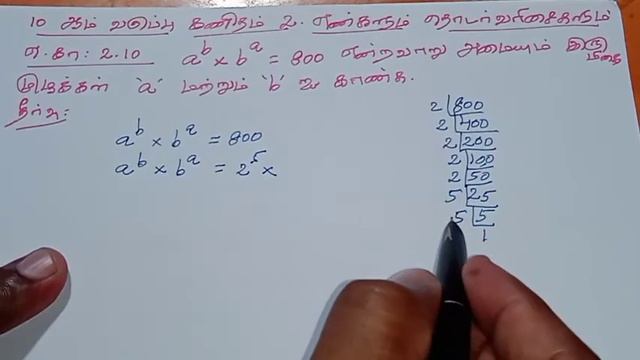 10 ஆம் வகுப்பு கணிதம் 2. எண்களும் தொடர்வரிசைகளும்
எ.கா: 2.10 a^b × b^a = 800 என்றவாறு அமையும் இரு மிகை
முழுக்கள் 'a' மற்றும் 'b' ஐ காண்க.
தீர்வு:
a^b × b^a = 800
a^b × b^a = 2^5 ×
2 800
2 400
2 200
2 100
2 50
5 25
5 5
1